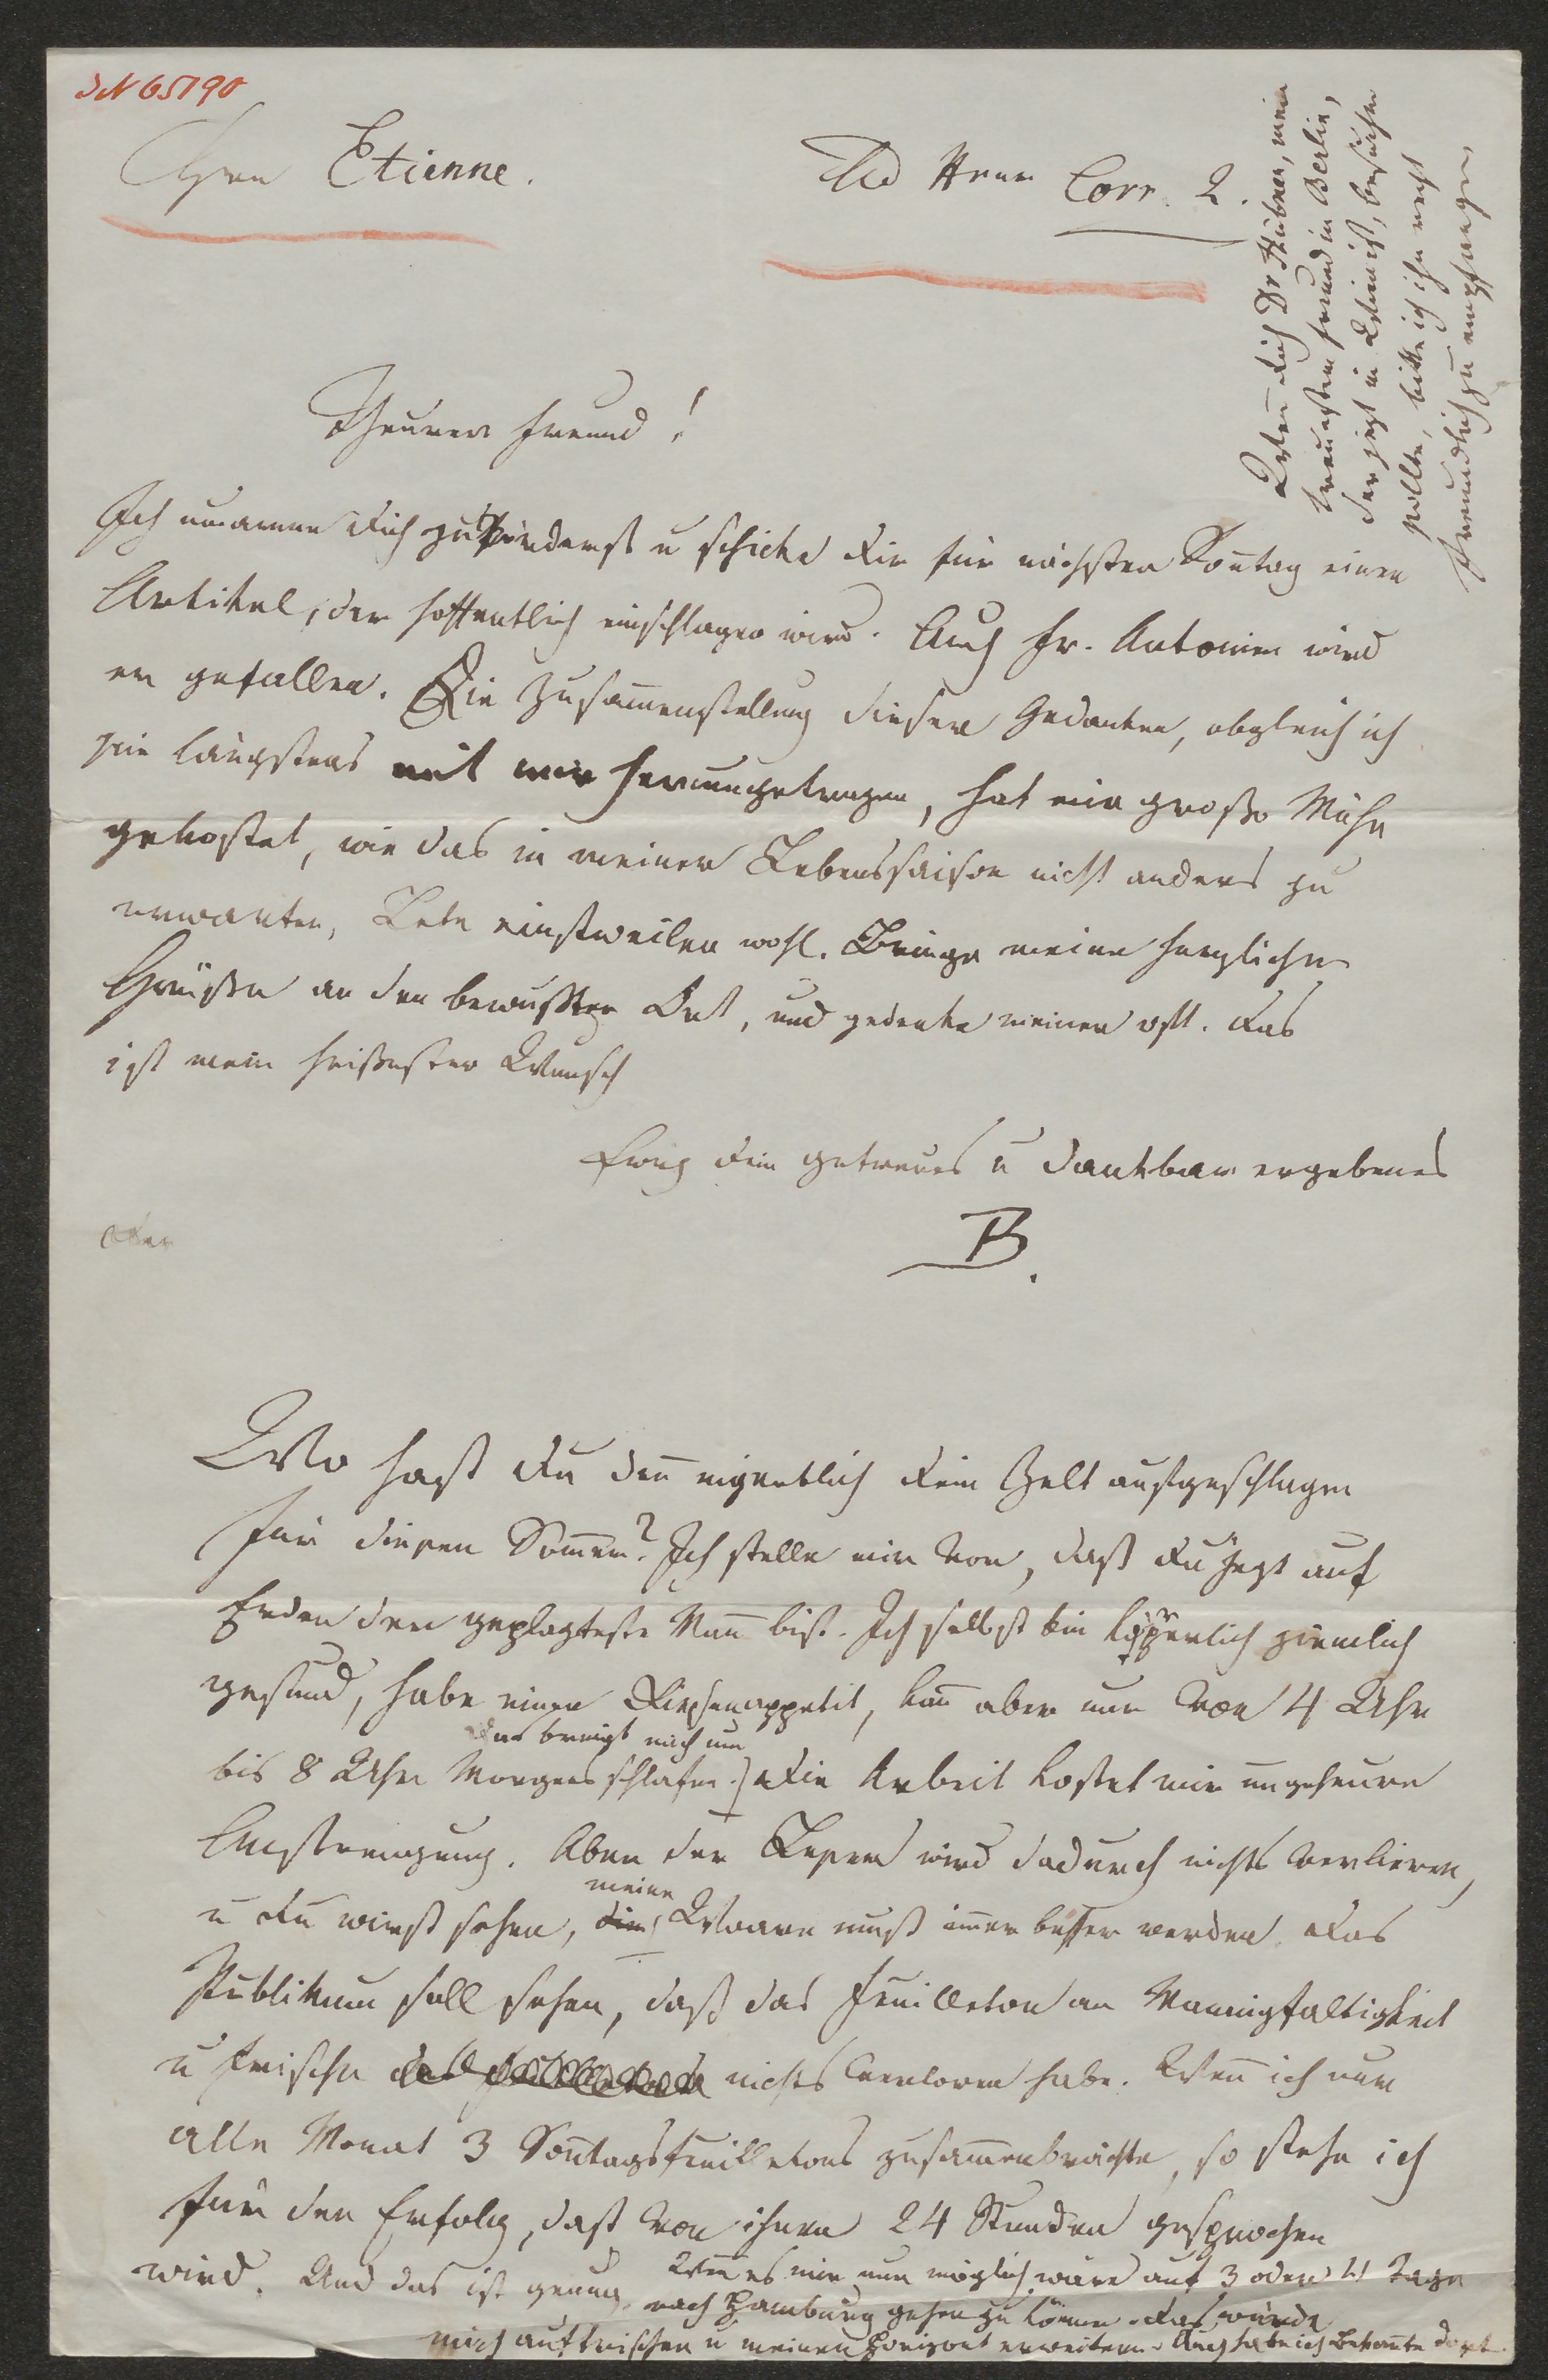 JN 65190
Herrn Etienne.
Ad Herrn Corr. 2.
Wenn dich Dr Hübner, mein
treuester Freund in Berlin,
der jetzt in Wien ist, besuchen
sollte, bitte ich ihn recht
freundlich zu empfangen
Theurer Freund!
Ich umarme Dich zuförderst u schicke Dir für nächsten Sontag einen
Artikel, der hoffentlich einschlagen wird. Auch Fr. Antonien wird
er gefallen. Die Zusamenstellung dieser Gedanken, obgleich ich
sie längstens mit mir herumgetragen, hat mir große Mühe
gekostet, wie das in meiner Lebenssaison nicht anders zu
erwarten. Lebe einstweilen wohl. Bringe meine herzlichen
Grüße an den bewußten Ort, und gedenke meiner oft. Das
ist mein heißester Wunsch
Ewig dein getreues u dankbar ergebenes
B.
Der
Wo hast Du den eigentlich Dein Zelt aufgeschlagen
für diesen Somer? Ich stelle mir vor, daß Du jezt auf
Erden der geplagteste Man bist. Ich selbst bin körperlich ziemlich
gesund, habe einen Riesenappetit, kan aber nur von 4 Uhr
das bringt mich um
bis 8 Uhr Morgens schlafen.) Die Arbeit kostet mir ungeheure
Anstrengung. Aber der Leser wird dadurch nichts verlieren,
meine
u Du wirst sehen, die Waare muß imer besser werden. Das
Publikum soll sehen, daß das Feuilleton an Mannigfaltigkeit
u Frische nichts verloren habe. Wen ich nur
alle Monat 3 Sontagsfeuilletons zusamenbrächte, so stehe ich
für den Erfolg, daß von ihnen 24 Stunden gesprochen
wird. Und das ist genug. Wen es mir nur möglich wäre auf 3 oder 4 Tage
nach Hamburg gehen zu könen. Das würde
mich auffrischen u meinen Horizont erweitern. Auch habe ich Bekante dort.